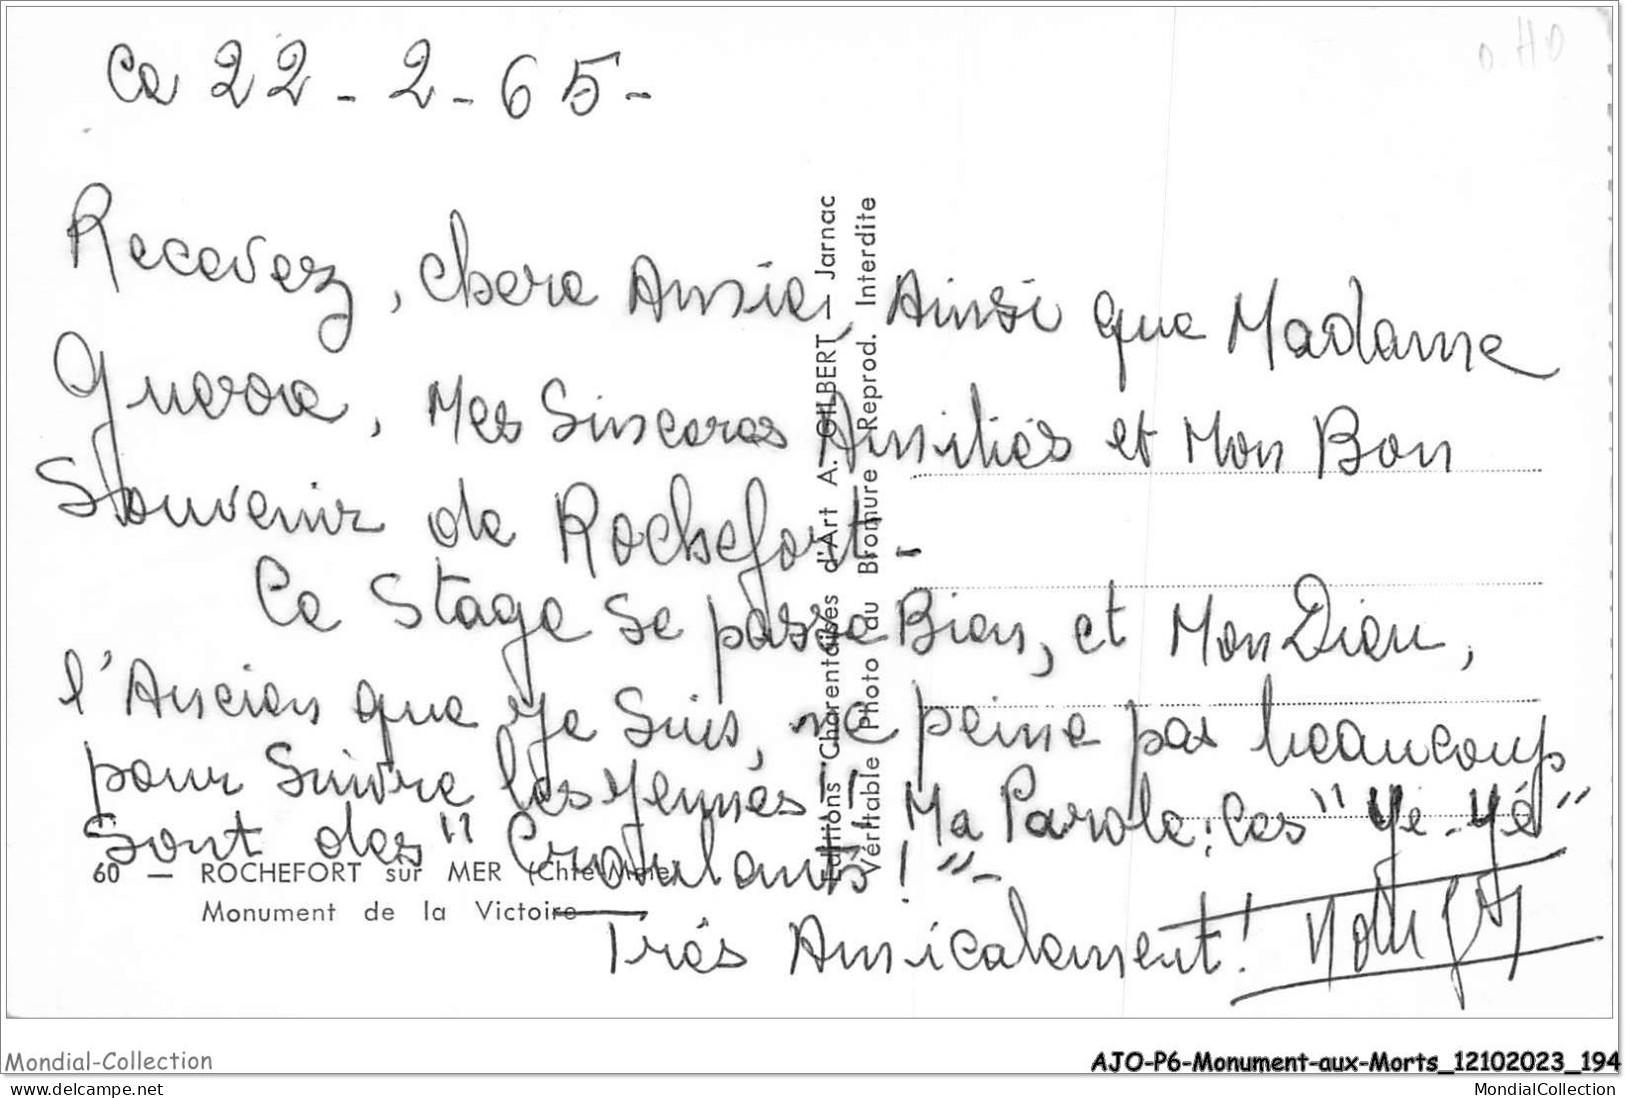 Ce 22-2-65-
Recevez, chere Amie, Ainsi que Madame
Guerre, Mes Sinceres Amitiés et Mon Bon
Souvenir de Rochefort-
Ce Stage se passe Bien, et Mon Dieu,
l'Ancien que je Suis, ne peine pas beaucoup
pour Suivre les jeunes! Ma Parole: Ces "Yé-Yé"
Sont des "Croulants!"-
Très Amicalement!
60 — ROCHEFORT sur MER (Chte-Mme)
Monument de la Victoire
Editions Charentaises d'Art A. GILBERT — Jarnac
Véritable Photo au Bromure Reprod. Interdite
Mondial-Collection
AJO-P6-Monument-aux-Morts_12102023_194
www.delcampe.net
MondialCollection